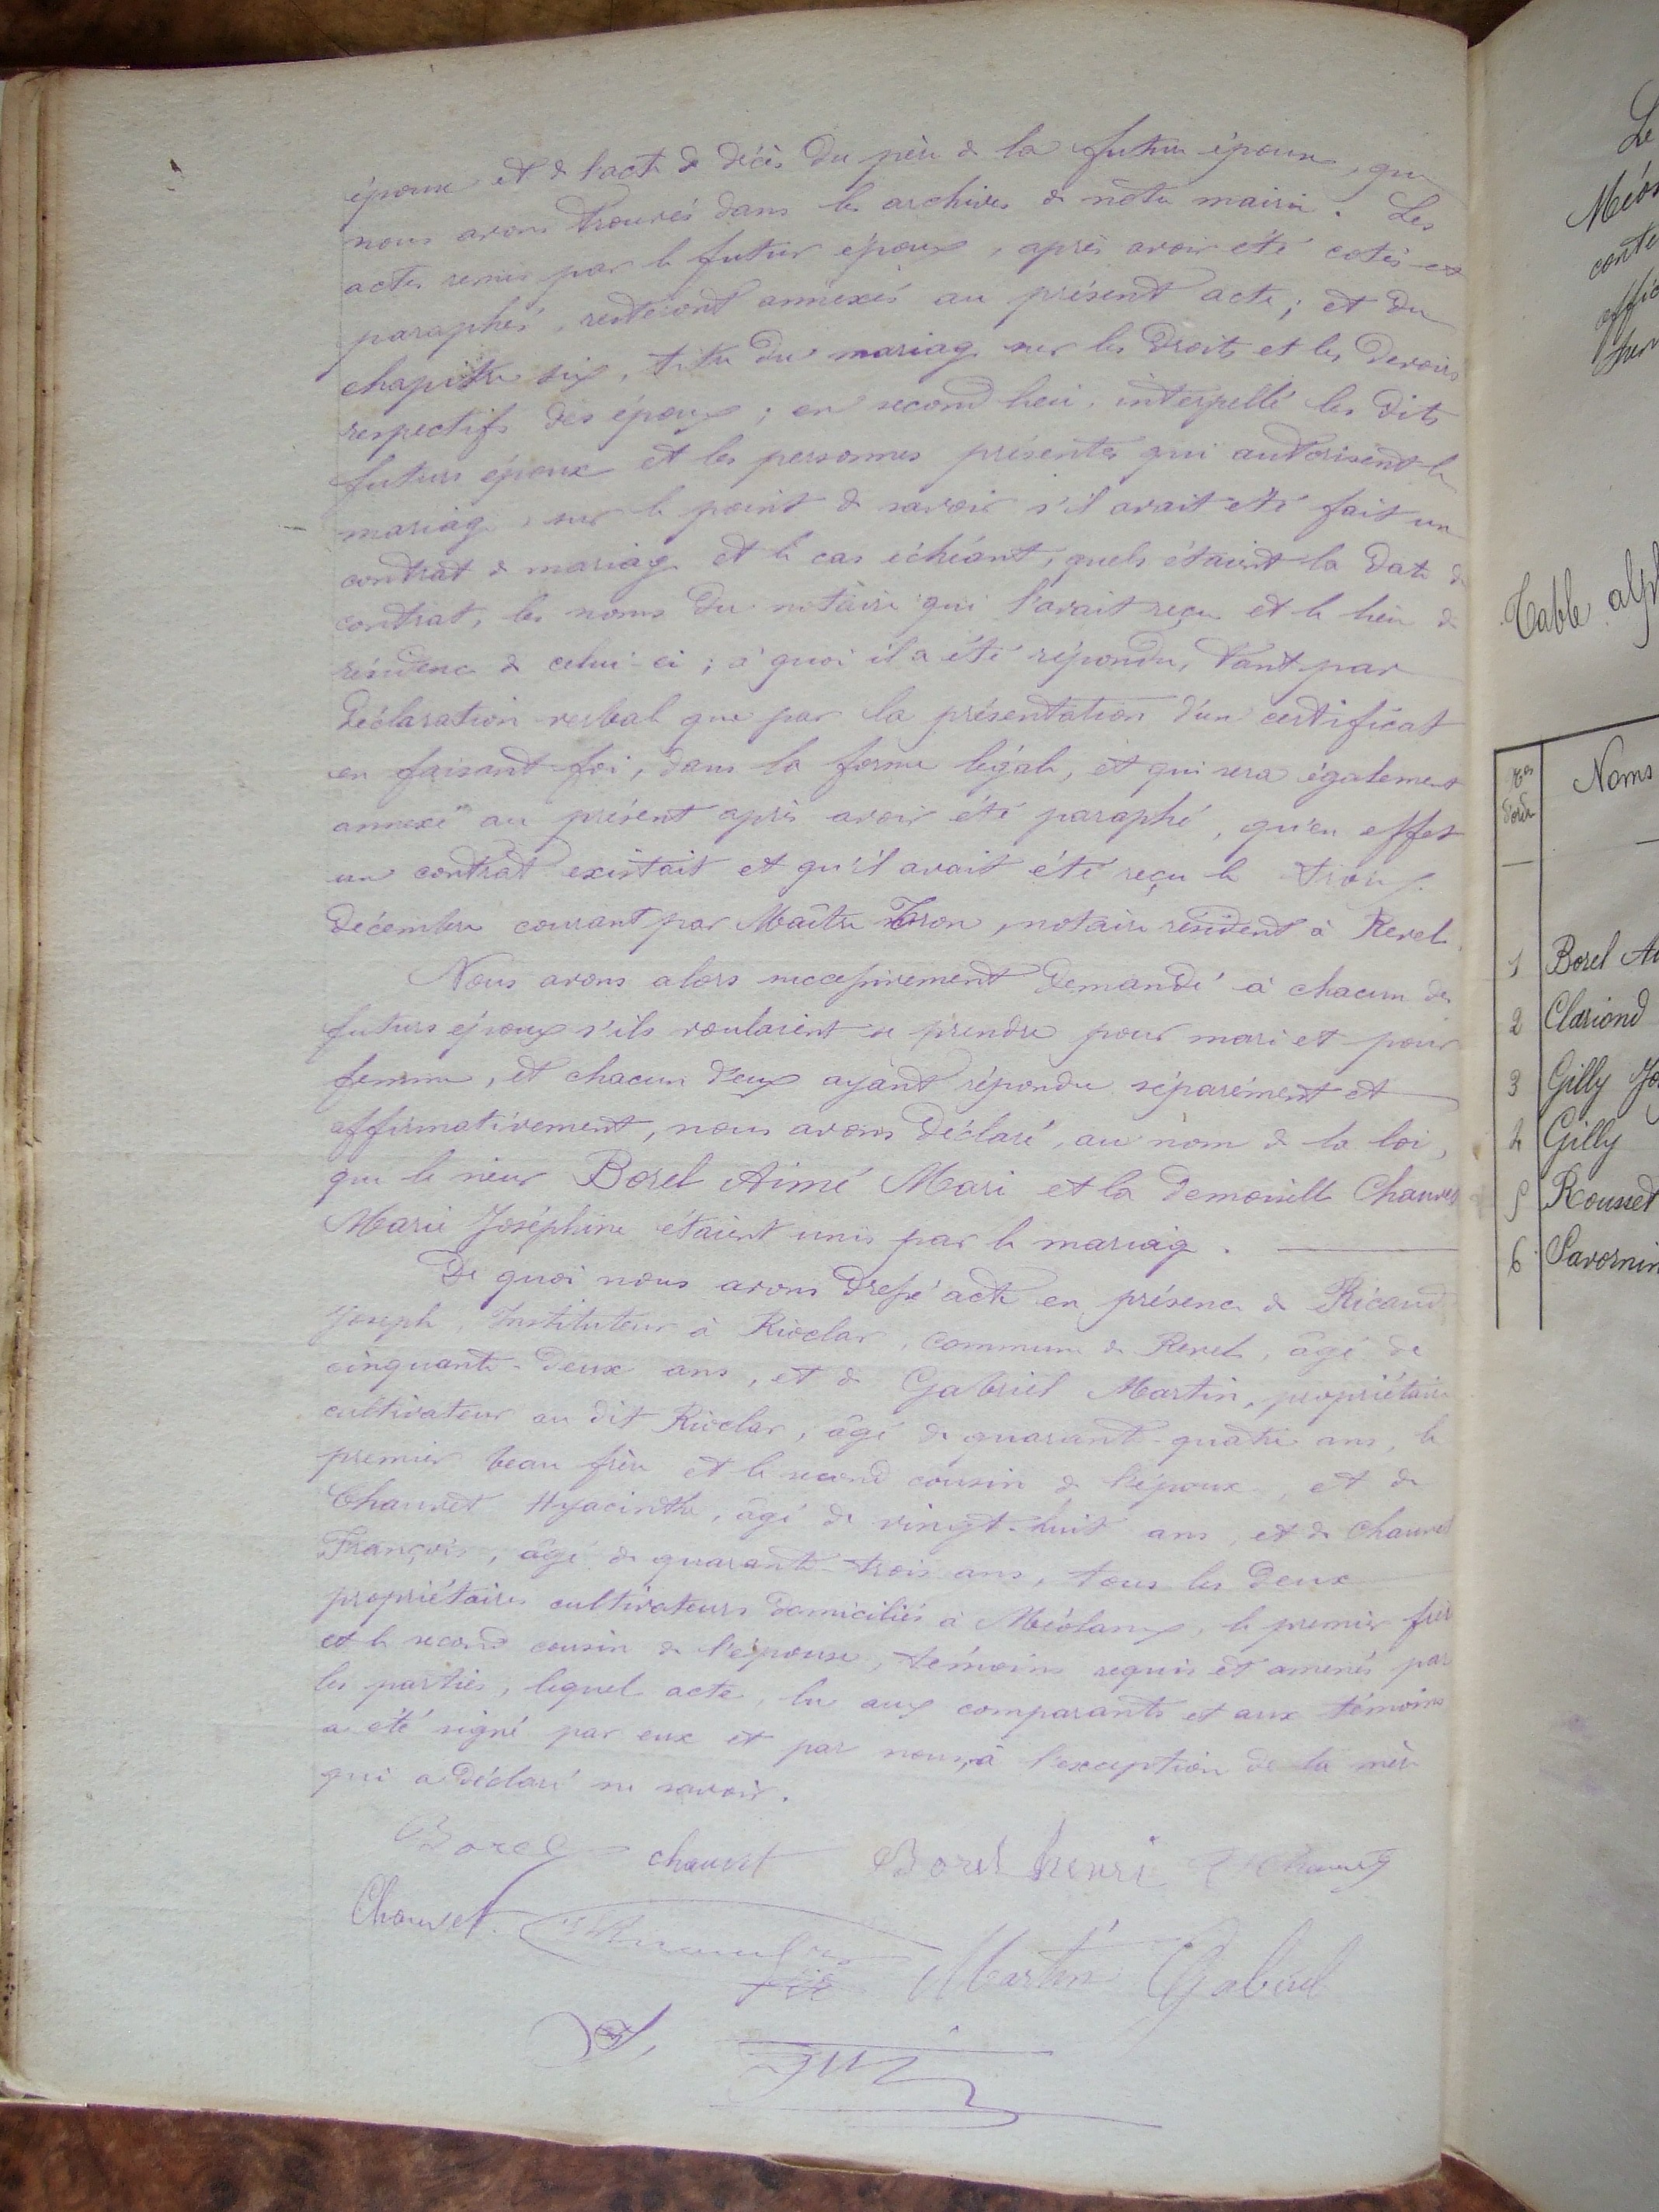 épouse et de l'acte de décès du père de la future épouse, que
nous avons trouvés dans les archives de notre mairie. Les
actes remis par le futur époux, après avoir été cotés et
paraphés, resteront annexés au présent acte; et du
chapitre six, titre du mariage sur les droits et les devoirs
respectifs des époux; en second lieu, interpellé les dits
futurs époux et les personnes présentes qui autorisent le
mariage, sur le point de savoir s'il avait été fait un
contrat de mariage et le cas échéant, quels étaient la date de
contrat, les noms du notaire qui l'avait reçu et le lieu de
résidence de celui-ci; à quoi il a été répondu, tant par
déclaration verbale que par la présentation d'un certificat
en faisant foi, dans la forme légale, et qui sera également
annexé au présent après avoir été paraphé, qu'en effet
un contrat existait et qu'il avait été reçu le
décembre courant par Maître, notaire résident à Revel.
Nous avons alors successivement demandé à chacun des
futurs époux s'ils voulaient se prendre pour mari et pour
femme, et chacun d'eux ayant répondu séparément et
affirmativement, nous avons déclaré, au nom de la loi,
que le sieur Borel Aimé Marie et la demoiselle Chauvet
Marie Joséphine étaient unis par le mariage.
De quoi nous avons dressé acte en présence de Ricaud
Joseph, Instituteur à Rioclar, commune de Revel, âgé de
cinquante-deux ans, et de Gabriel Martin, propriétaire
cultivateur au dit Rioclar, âgé de quarante-quatre ans, le
premier beau frère et le second cousin de l'époux, et de
Chauvet Hyacinthe, âgé de vingt-huit ans, et de Chauvet
François, âgé de quarante-trois ans, tous les deux
propriétaires cultivateurs domiciliés à Méolans, le premier frère
et le second cousin de l'épouse, témoins requis et amenés par
les parties, lequel acte, lu aux comparants et aux témoins
a été signé par eux et par nous, à l'exception de la mère
qui a déclaré ne savoir.
Borel chauvet Borel henri Chauvet
Chauvet
Martin Gabriel
Le
Méo
conte
offic
Table alph
Nos d'ordre Noms
1 Borel
2 Clariond
3 Gilly
4 Gilly
5 Rousset
6 Savornin